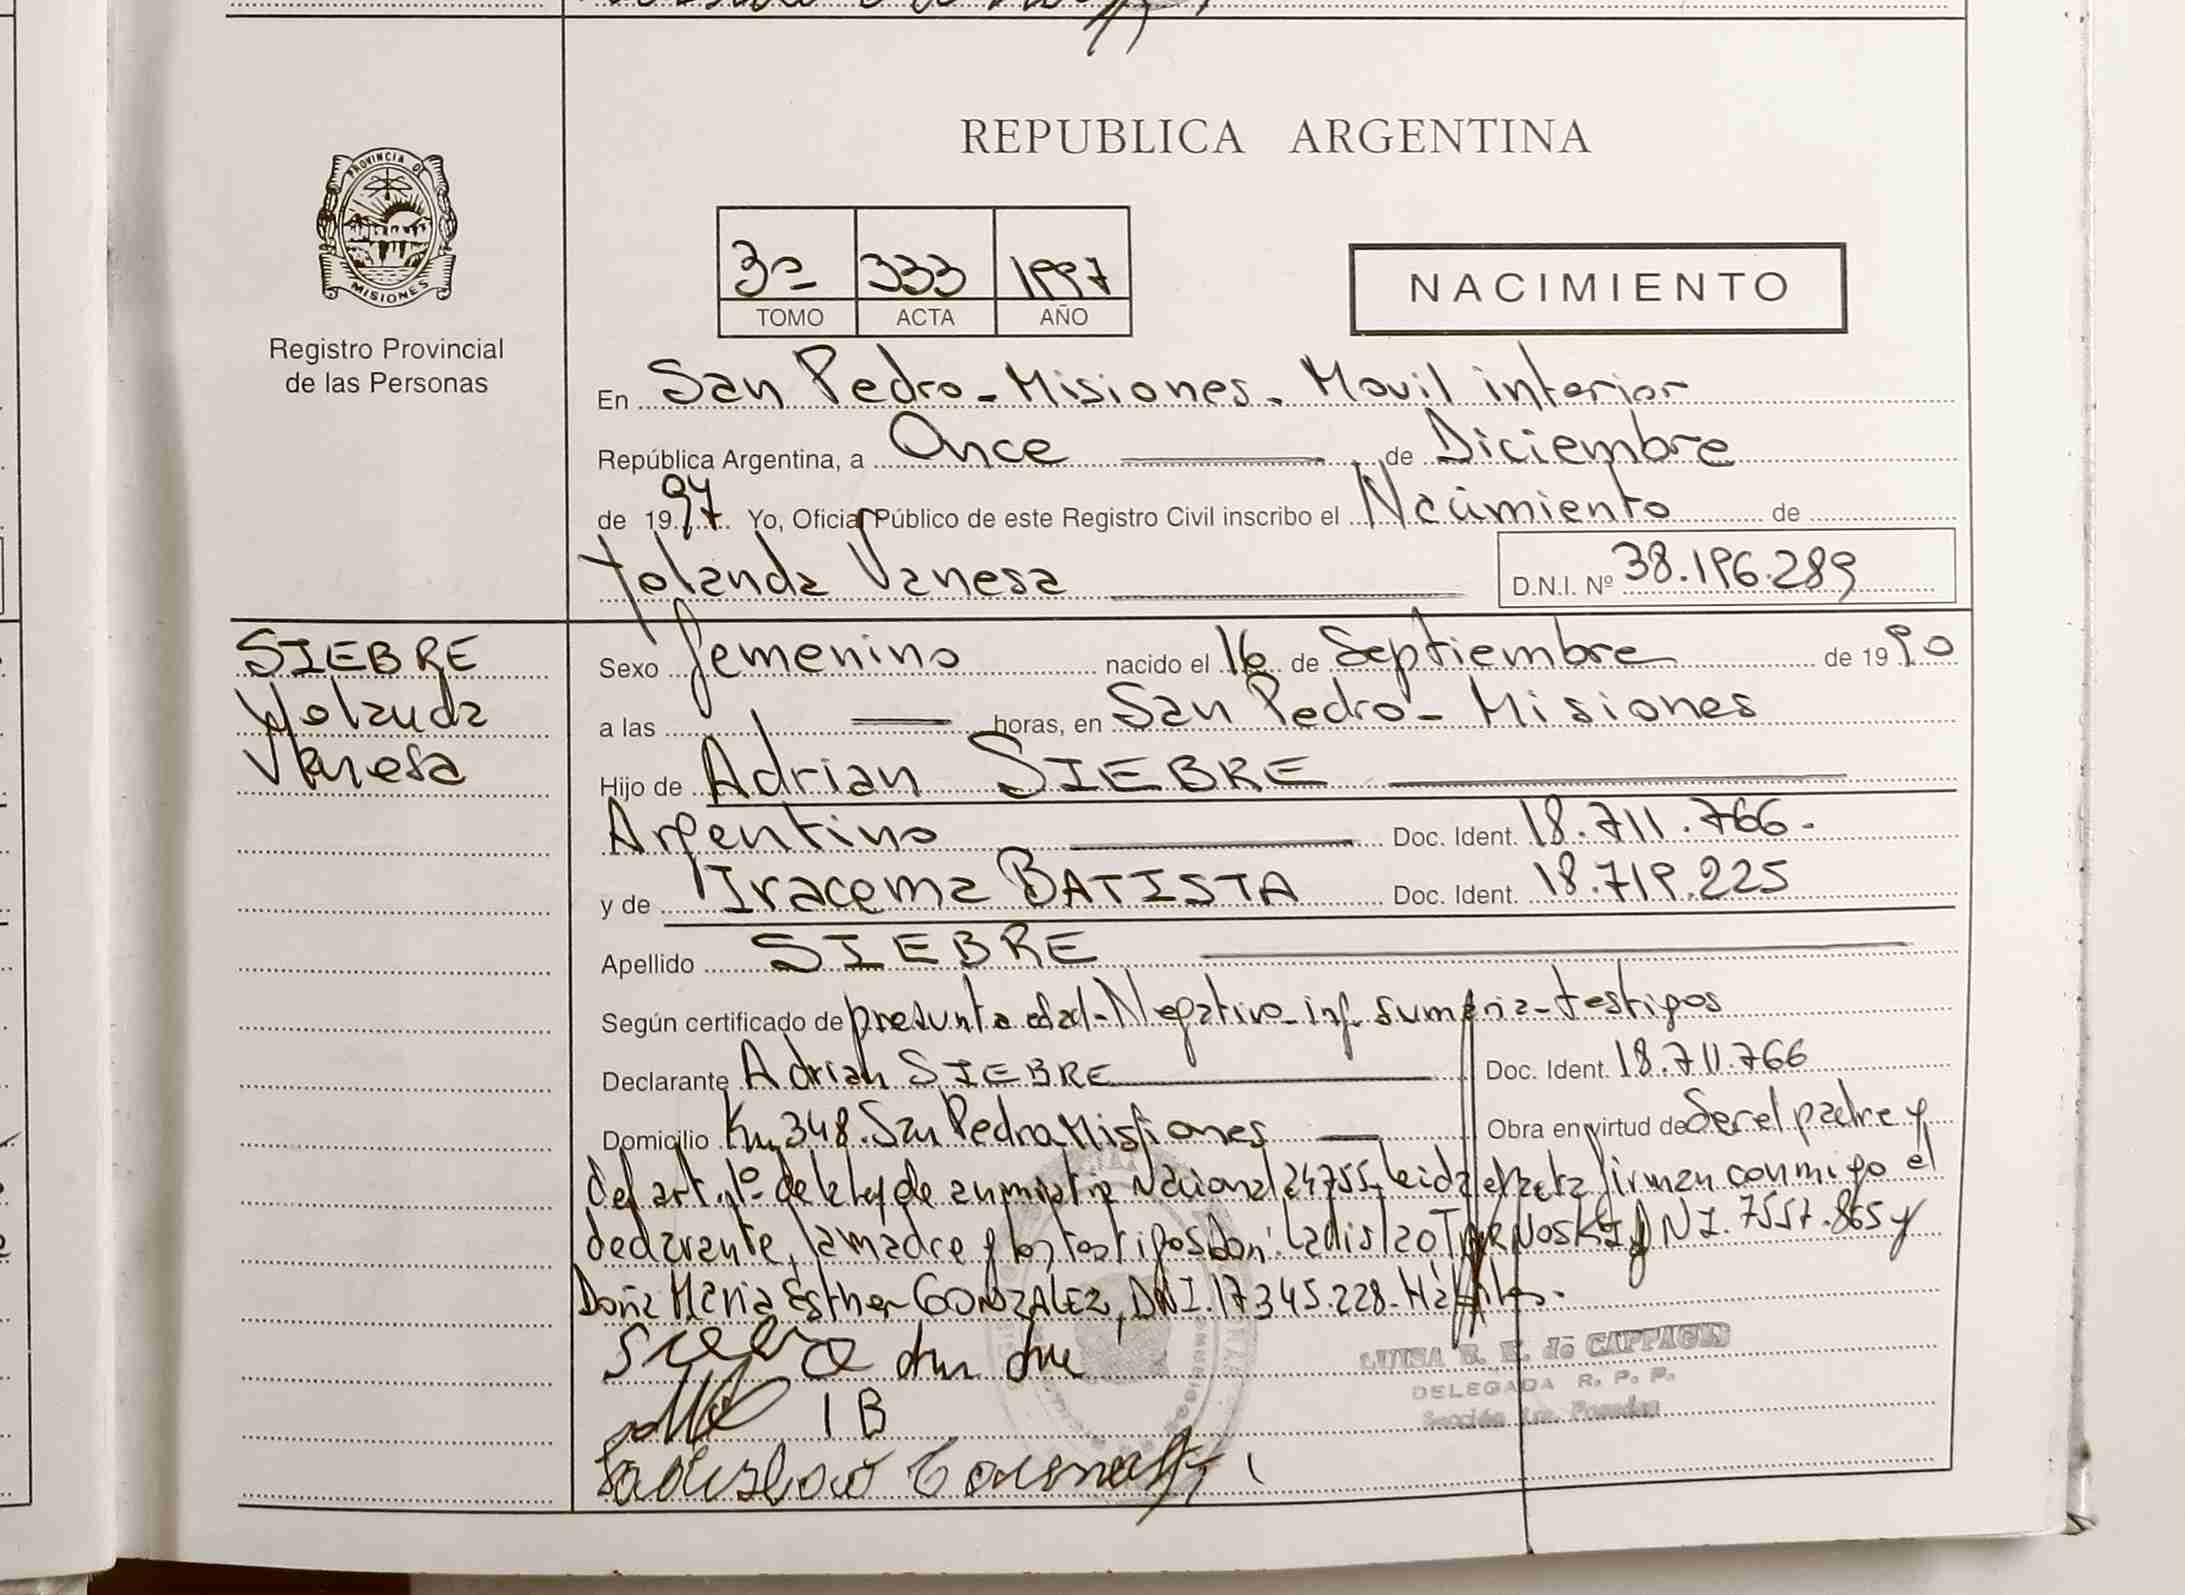 REPUBLICA ARGENTINA
PROVINCIA DE
MISIONES
Registro Provincial
de las Personas
3º 333 1997
TOMO ACTA AÑO
NACIMIENTO
En San Pedro - Misiones. Movil interior
República Argentina, a Once de Diciembre
de 1997 Yo, Oficial Público de este Registro Civil inscribo el Nacimiento de
Yolanda Vanesa D.N.I. Nº 38.196.289
SIEBRE
Yolanda
Vanesa
Sexo femenino nacido el 16 de Septiembre de 1990
a las horas, en San Pedro - Misiones
Hijo de Adrian SIEBRE
Argentino Doc. Ident. 18.711.766.
y de Iracema BATISTA Doc. Ident. 18.719.225
Apellido SIEBRE
Según certificado de presunta edad - Negativo - inf. sumaria - testigos
Declarante Adrian SIEBRE Doc. Ident. 18.711.766
Domicilio Km 348. San Pedro Misiones Obra en virtud de Ser el padre y
del art. 1º de la ley de Nacional 24755 - Leida el acta firman conmigo el
declarante, la madre y los testigos Don: Ladislao DNI. 7557.865 y
Doña Maria Esther GONZALEZ, DNI. 17.345.228 -
I B
LUISA E. de
DELEGADA R. P. P.
Sección 1ra. Posadas
Ladislao